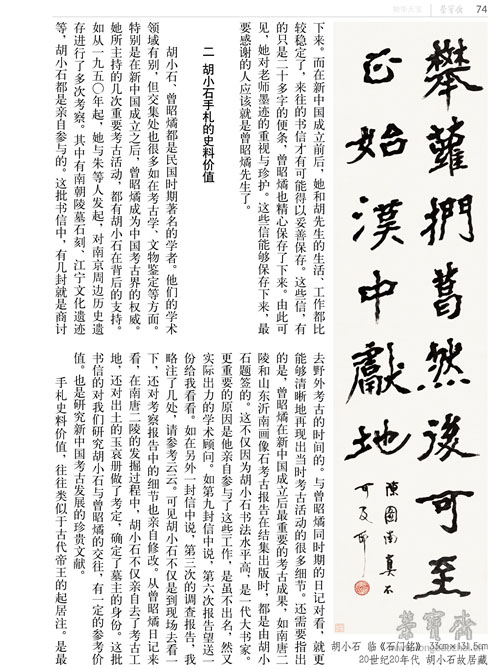 物华天宝 荣宝斋 74
攀蘿捫葛然後可至
正始漢中獻地
下来。而在新中国成立前后，她和胡先生的生活、工作都比
较稳定了，来往的书信才有可能得以妥善保存。这些信，有
的只是二十多字的便条，曾昭燏也精心保存了下来。由此可
见，她对老师墨迹的重视与珍护。这些信能够保存下来，最
要感谢的人应该就是曾昭燏先生了。
二 胡小石手札的史料价值
胡小石、曾昭燏都是民国时期著名的学者。他们的学术
领域有别，但交集处也很多如在考古学、文物鉴定等方面。
特别是在新中国成立之后，曾昭燏成为中国考古界的权威。
她所主持的几次重要考古活动，都有胡小石在背后的支持。
如从一九五〇年起，她与朱等人发起，对南京周边历史遗
存进行了多次考察。其中有南朝陵墓石刻、江宁文化遗迹
等，胡小石都是亲自参与的。这批书信中，有几封就是商讨
去野外考古的时间的。与曾昭燏同时期的日记对看，就更
能够清晰地再现出当时考古活动的很多细节。还需要指出
的是，曾昭燏在新中国成立后最重要的考古成果，如南唐二
陵和山东沂南画像石考古报告在结集出版时，都是由胡小
石题签的。这不仅因为胡小石书法水平高，是一代大家。
更重要的原因是他亲自参与了这些工作，是虽不出名，然又
实际出力的学术顾问。如第九封信中说，第六次报告望送一
份给我看看。如在另外一封信中说，第三次的调查报告，我
略注了几处，请参考云云。可见胡小石不仅是到现场去看一
下，还对考察报告中的细节也亲自修改。从曾昭燏日记来
看，在南唐二陵的发掘过程中，胡小石不仅亲自去了考古工
地，还对出土的玉哀册做了考定，确定了墓主的身份。这批
书信的对我们研究胡小石与曾昭燏的交往，有一定的参考价
值。也是研究新中国考古发展的珍贵文献。
手札史料价值，往往类似于古代帝王的起居注。是最
胡小石 临《石门铭》 33cm×131.5cm
20世纪20年代 胡小石故居藏
荣宝斋